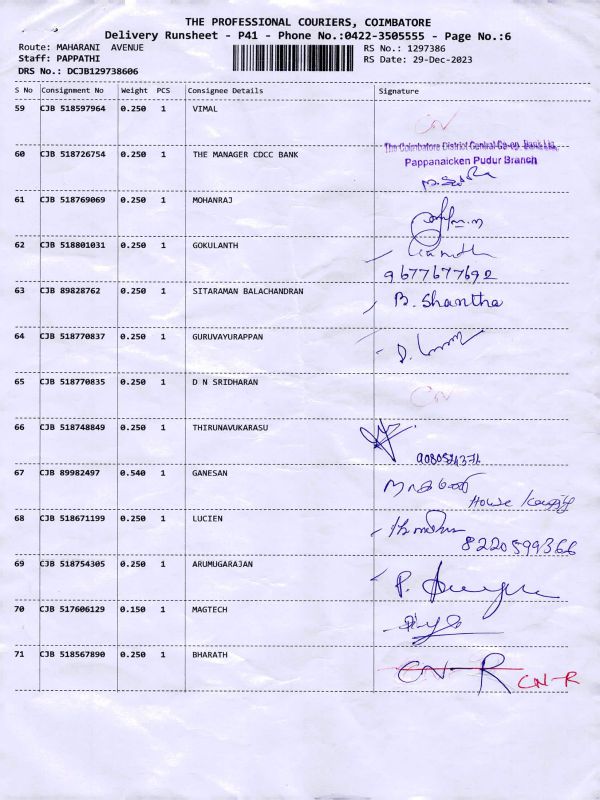 THE PROFESSIONAL COURIERS, COIMBATORE
Delivery Runsheet - P41 - Phone No.:0422-3505555 - Page No.:6
Route: MAHARANI AVENUE RS No.: 1297386
Staff: PAPPATHI RS Date: 29-Dec-2023
DRS No.: DCJB129738606
S No Consignment No Weight PCS Consignee Details Signature
59 CJB 518597964 0.250 1 VIMAL CN
60 CJB 518726754 0.250 1 THE MANAGER CDCC BANK The Coimbatore District Central Co-op. Bank Ltd.,
Pappanaicken Pudur Branch
61 CJB 518769069 0.250 1 MOHANRAJ
62 CJB 518801031 0.250 1 GOKULNATH
9677677692
63 CJB 89828762 0.250 1 SITARAMAN BALACHANDRAN B. Shantha
64 CJB 518770837 0.250 1 GURUVAYURAPPAN
65 CJB 518770835 0.250 1 D N SRIDHARAN CN
66 CJB 518748849 0.250 1 THIRUNAVUKARASU
67 CJB 89982497 0.540 1 GANESAN
House
68 CJB 518671199 0.250 1 LUCIEN
8220599366
69 CJB 518754305 0.250 1 ARUMUGARAJAN P.
70 CJB 517606129 0.150 1 MAGTECH
71 CJB 518567890 0.250 1 BHARATH CN-R CN-R